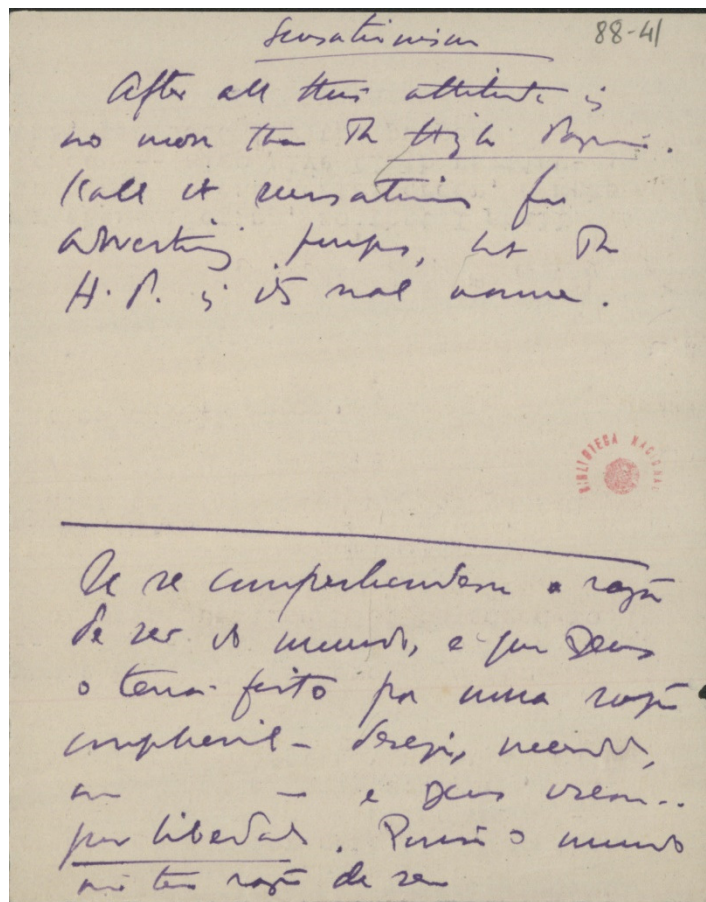 Sensationism
88-41
After all this attitude is
no more than the High Pagan.
I call it sensationism for
advertising purposes, but the
H. P. is its real name.
BIBLIOTECA NACIONAL
Se se comprehendesse a razão
de ser do mundo, é que Deus
o teria feito por uma razão
comprehensivel — desejo, necessidade,
ou — e Deus creou..
por liberdade. Porisso o mundo
não tem razão de ser